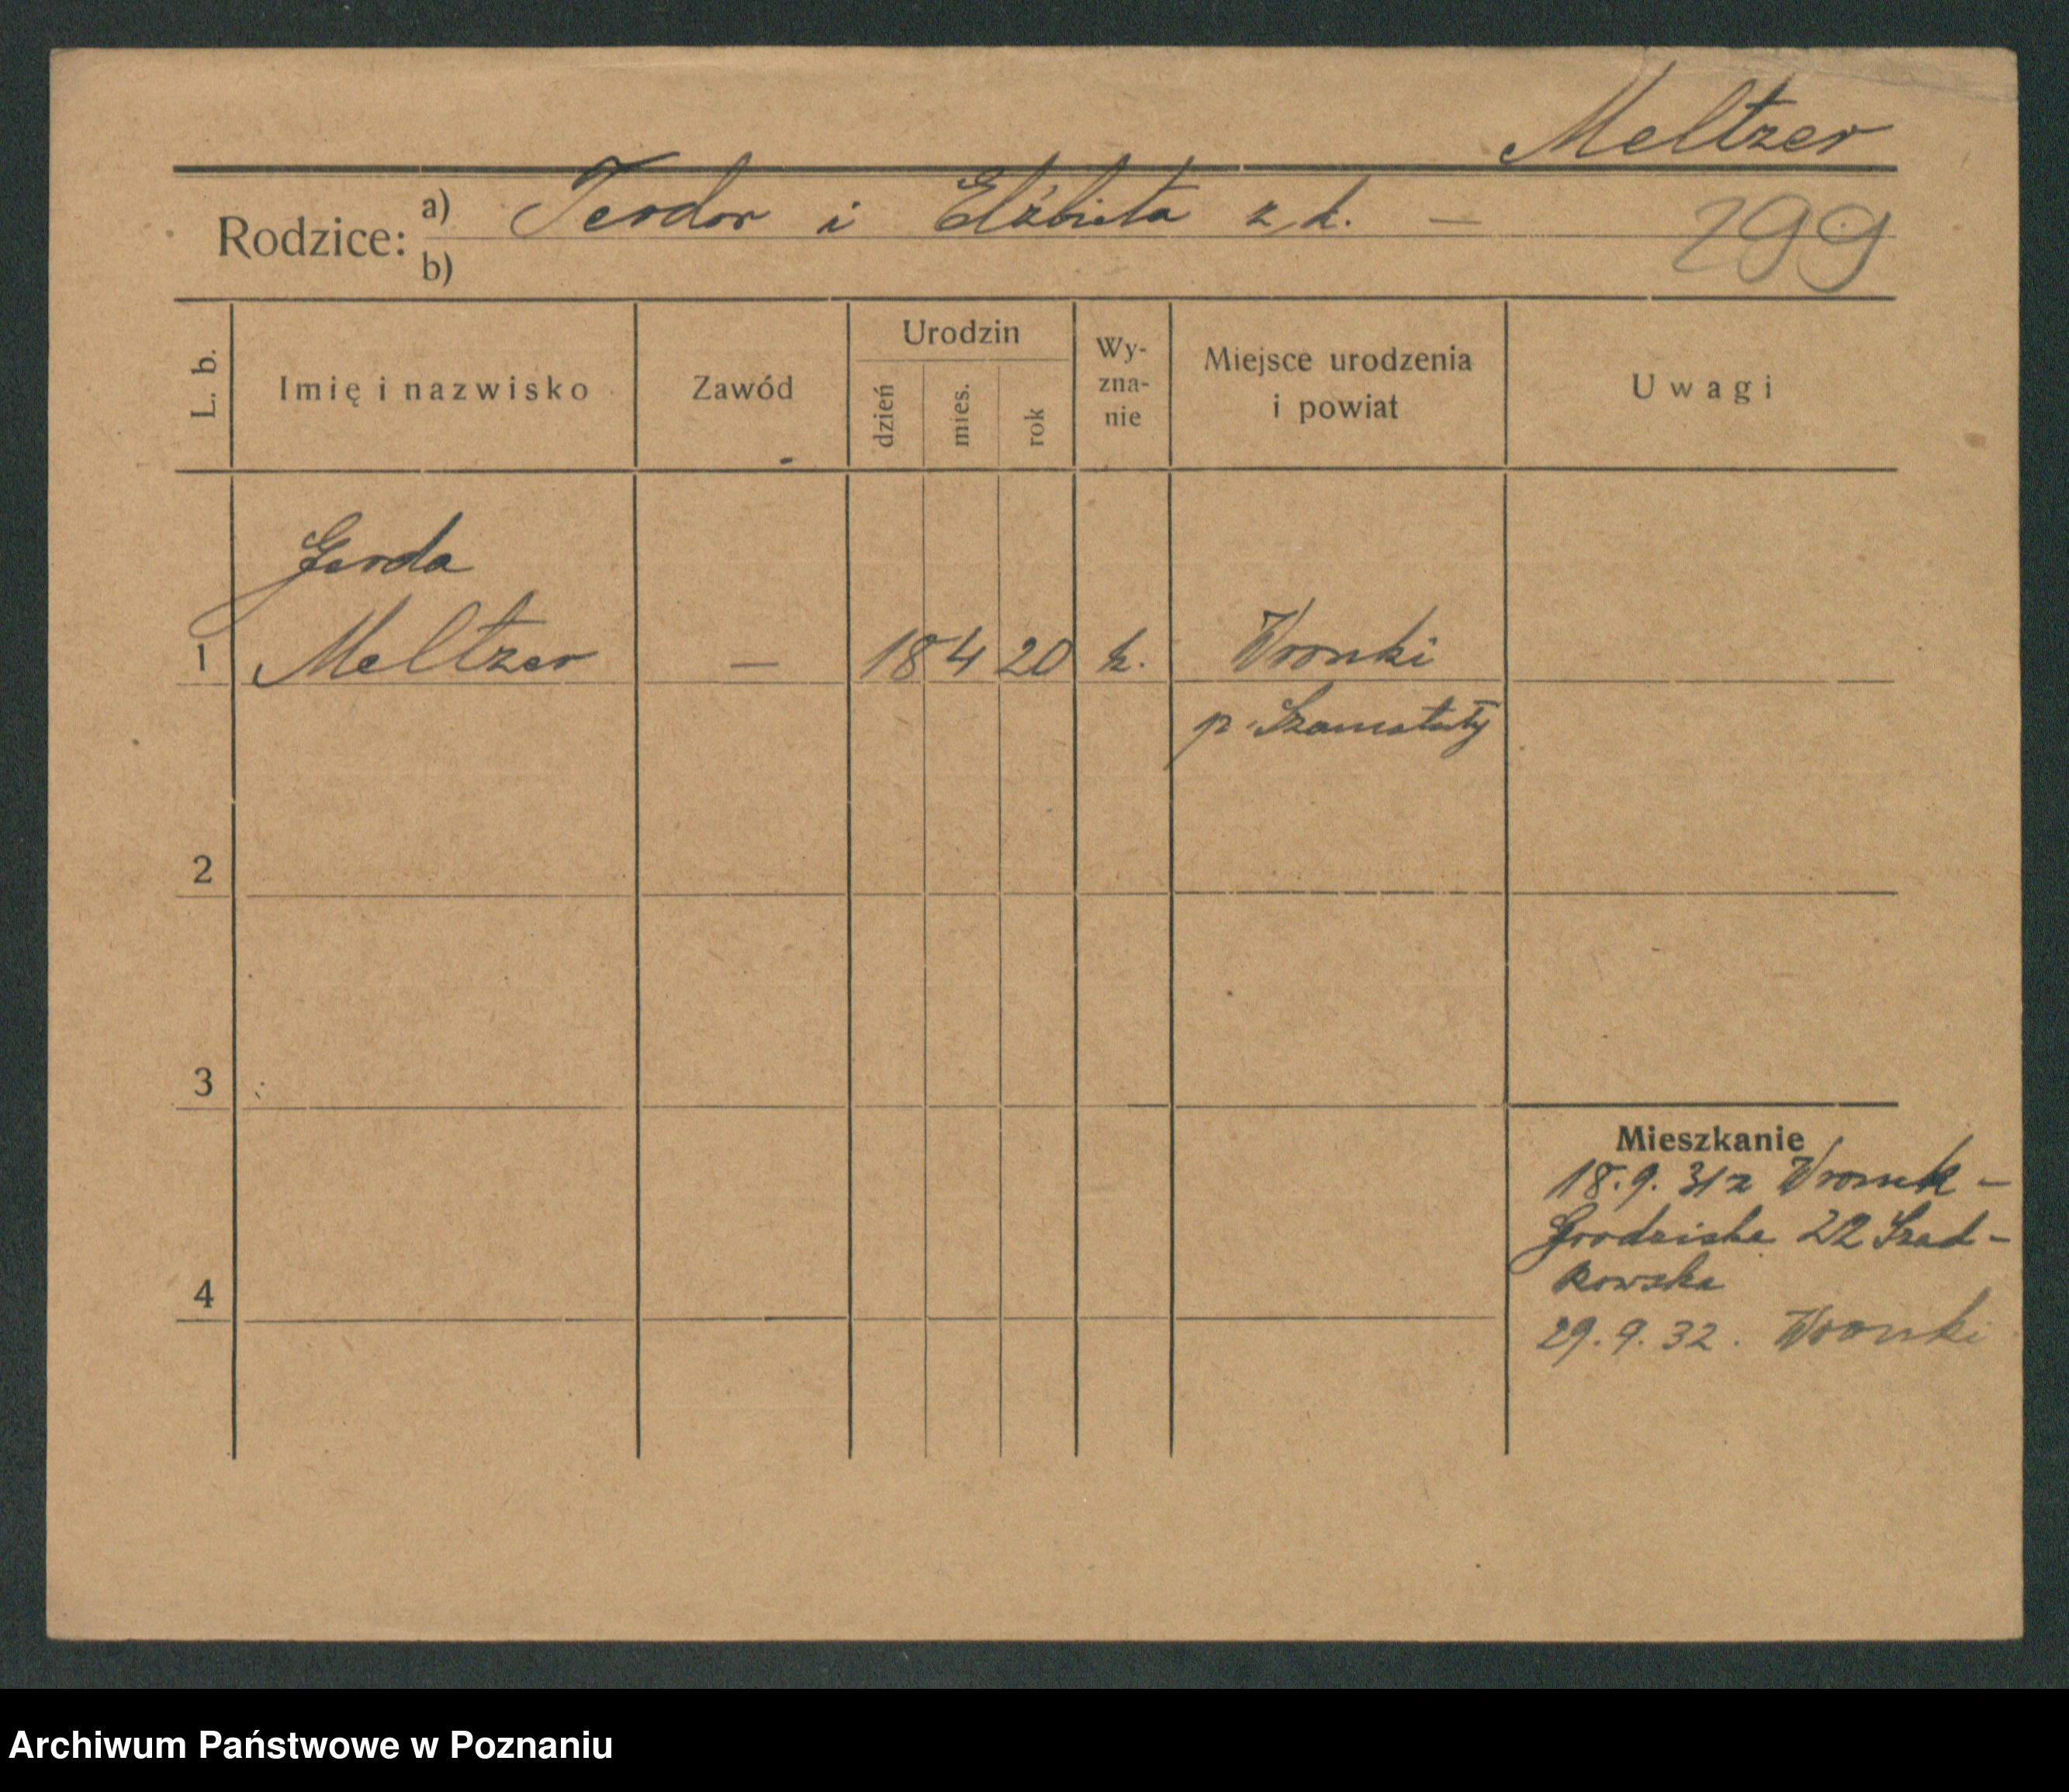 Meltzer
Rodzice: a) Teodor i Elżbieta z d. —
b)
299
L. b.
Imię i nazwisko
Zawód
Urodzin
dzień
mies.
rok
Wy-
zna-
nie
Miejsce urodzenia
i powiat
Uwagi
Gerda
1 Meltzer — 18 4 20 k. Wronki
p. Szamotuły
2
3
4
Mieszkanie
18.9.31 z Wronek -
Grodziska 22 Szad-
kowska
29.9.32. Wronki
Archiwum Państwowe w Poznaniu